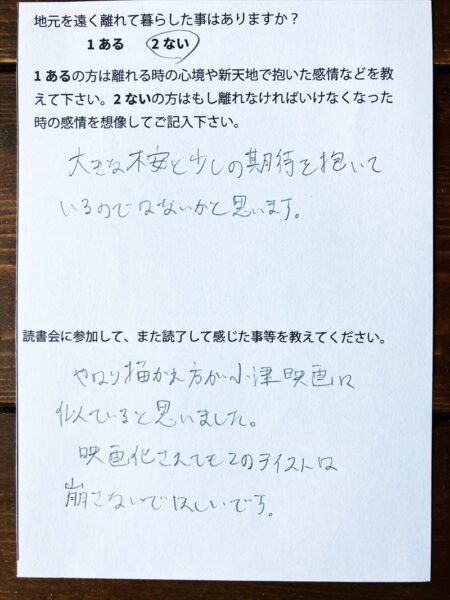 地元を遠く離れて暮らした事はありますか？
1 ある 2 ない
1 あるの方は離れる時の心境や新天地で抱いた感情などを教
えて下さい。2 ないの方はもし離れなければいけなくなった
時の感情を想像してご記入下さい。
大きな不安と少しの期待を抱いて
いるのではないかと思います。
読書会に参加して、また読了して感じた事等を教えてください。
やはり描かれ方が小津映画に
似ていると思いました。
映画化されてもこのテイストは
崩さないでほしいです。